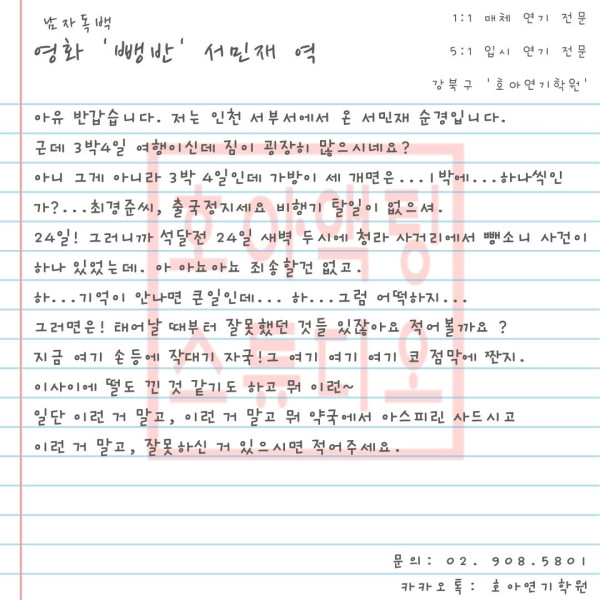 남자독백
1:1 매체 연기 전문
영화 '뺑반' 서민재 역
5:1 입시 연기 전문
강북구 '호아연기학원'
아유 반갑습니다. 저는 인천 서부서에서 온 서민재 순경입니다.
근데 3박4일 여행이신데 짐이 굉장히 많으시네요?
아니 그게 아니라 3박 4일인데 가방이 세 개면은...1박에...하나씩인
가?...최경준씨, 출국정지세요 비행기 탈일이 없으셔.
24일! 그러니까 석달전 24일 새벽 두시에 청라 사거리에서 뺑소니 사건이
하나 있었는데. 아 아뇨아뇨 죄송할건 없고.
하...기억이 안나면 큰일인데... 하...그럼 어떡하지...
그러면은! 태어날 때부터 잘못했던 것들 있잖아요 적어볼까요 ?
지금 여기 손등에 작대기 자국!그 여기 여기 여기 코 점막에 짠지.
이사이에 떨도 낀 것 같기도 하고 뭐 이런~
일단 이런 거 말고, 이런 거 말고 뭐 약국에서 아스피린 사드시고
이런 거 말고, 잘못하신 거 있으시면 적어주세요.
호아액팅
스튜디오
문의: 02. 908.5801
카카오톡: 호아연기학원